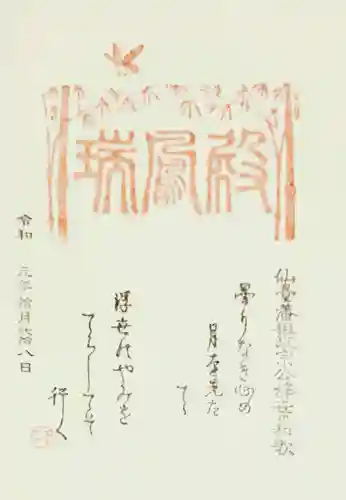 瑞鳳殿
仙臺藩祖政宗公辞世和歌
曇りなき心の
月を先た
てゝ
浮世のやみを
てらしてそ
行く
令和 元年拾月弐拾八日